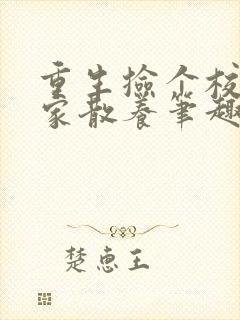 重生捡个校
家散养笔趣
楚惠王